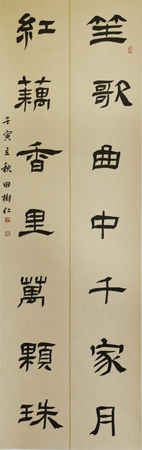 笙歌曲中千家月
紅藕香里萬顆珠
壬寅立秋田樹仁